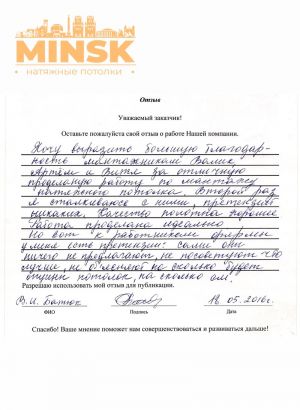 MINSK
натяжные потолки
Отзыв
Уважаемый заказчик!
Оставьте пожалуйста свой отзыв о работе Нашей компании.
Хочу выразить большую благодар-
ность монтажникам Валик,
Артём и Витя за отличную
проделаную работу по монтажу
натяжного потолка. Второй раз
я сталкиваюсь с ними, претензий
никаких. Качество полотна хорошее
Работа проделана идеально
Но вот к работникам фирмы
у меня есть претензии: сами они
ничего не предлагают, не посоветуют что
лучше, не на сколько будет
опущен потолок, на сколько см.
Разрешаю использовать мой отзыв для публикации.
В.И. 18.05.2016г.
ФИО Подпись Дата
Спасибо! Ваше мнение поможет нам совершенствоваться и развиваться дальше!